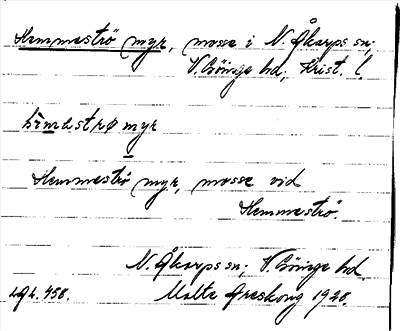 Hemmeströ myr, mosse i N. Åkarps sn;
V. Göinge hd; Krist. l.
hèmƐstrø myr
Hemmeströ myr, mosse vid
Hemmeströ.
N. Åkarps sn; V. Göinge hd.
Malte Areskoug 1928.